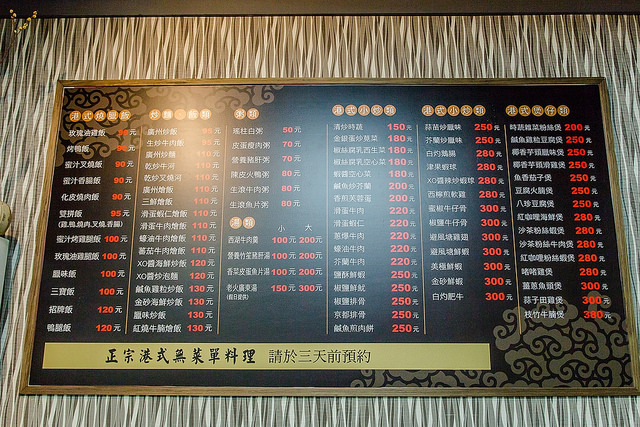 港式燒臘飯
玫瑰油雞飯 90元
烤鴨飯 90元
蜜汁叉燒飯 90元
蜜汁香腸飯 90元
化皮燒肉飯 90元
雙拼飯 95元
(雞,鴨,燒肉,叉燒,香腸)
蜜汁烤雞腿飯 100元
玫瑰油雞腿飯 100元
臘味飯 100元
三寶飯 100元
招牌飯 120元
鴨腿飯 120元
炒麵 飯類
廣州炒飯
生炒牛肉飯
廣州炒麵 110元
乾炒牛河 110元
乾炒叉燒河 110元
廣州燴飯 110元
三鮮燴飯 110元
滑蛋蝦仁燴飯 110元
滑蛋牛肉燴飯 110元
蠔油牛肉燴飯 110元
蕃茄牛肉燴飯 110元
XO醬海鮮炒飯 120元
XO醬炒泡麵 120元
鹹魚雞粒炒飯 130元
金砂海鮮炒飯 130元
臘味炒飯 130元
紅燒牛腩燴飯 130元
粥類
瑤柱白粥 50元
皮蛋瘦肉粥 70元
營養豬肝粥 70元
陳皮火鴨粥 80元
生滾牛肉粥 80元
生滾魚片粥 80元
湯類
小 大
西湖牛肉羹 100元 200元
營養竹笙豬肝湯 100元 200元
香菜皮蛋魚片湯 100元 200元
老火廣東湯 150元 300元
(假日提供)
港式小炒類
清炒時蔬 150元
金銀蛋炒莧菜 180元
椒絲腐乳西生菜 180元
椒絲腐乳空心菜 180元
蝦醬空心菜 180元
鹹魚炒芥蘭 200元
香煎芙蓉蛋 200元
滑蛋牛肉 220元
滑蛋蝦仁 220元
蔥爆牛肉 220元
蠔油牛肉 220元
芥蘭牛肉 220元
鹽酥鮮蝦 250元
椒鹽鮮魷 250元
椒鹽排骨 250元
京都排骨 250元
鹹魚煎肉餅 250元
港式小炒類
蒜苗炒臘味 250元
芥蘭炒臘味 250元
白灼鵝腸 280元
津果蝦球 280元
XO醬辣炒蝦球 280元
西檸煎軟雞 280元
蜜椒牛仔骨 300元
椒鹽牛仔骨 300元
避風塘雞翅 300元
避風塘鮮蝦 300元
美極鮮蝦 300元
金砂鮮蝦 300元
白灼肥牛 300元
港式煲仔類
時蔬雜菜粉絲煲 200元
鹹魚雞粒豆腐煲 250元
椰香芋頭臘味煲 250元
椰香芋頭滑雞煲 250元
魚香茄子煲 250元
豆腐火腩煲 250元
八珍豆腐煲 250元
紅咖哩海鮮煲 280元
沙茶粉絲蝦煲 280元
沙茶粉絲牛肉煲 280元
紅咖哩粉絲蝦煲 280元
啫啫雞煲 280元
薑蔥魚頭煲 300元
蒜子田雞煲 300元
枝竹牛腩煲 380元
正宗港式無菜單料理 請於三天前預約